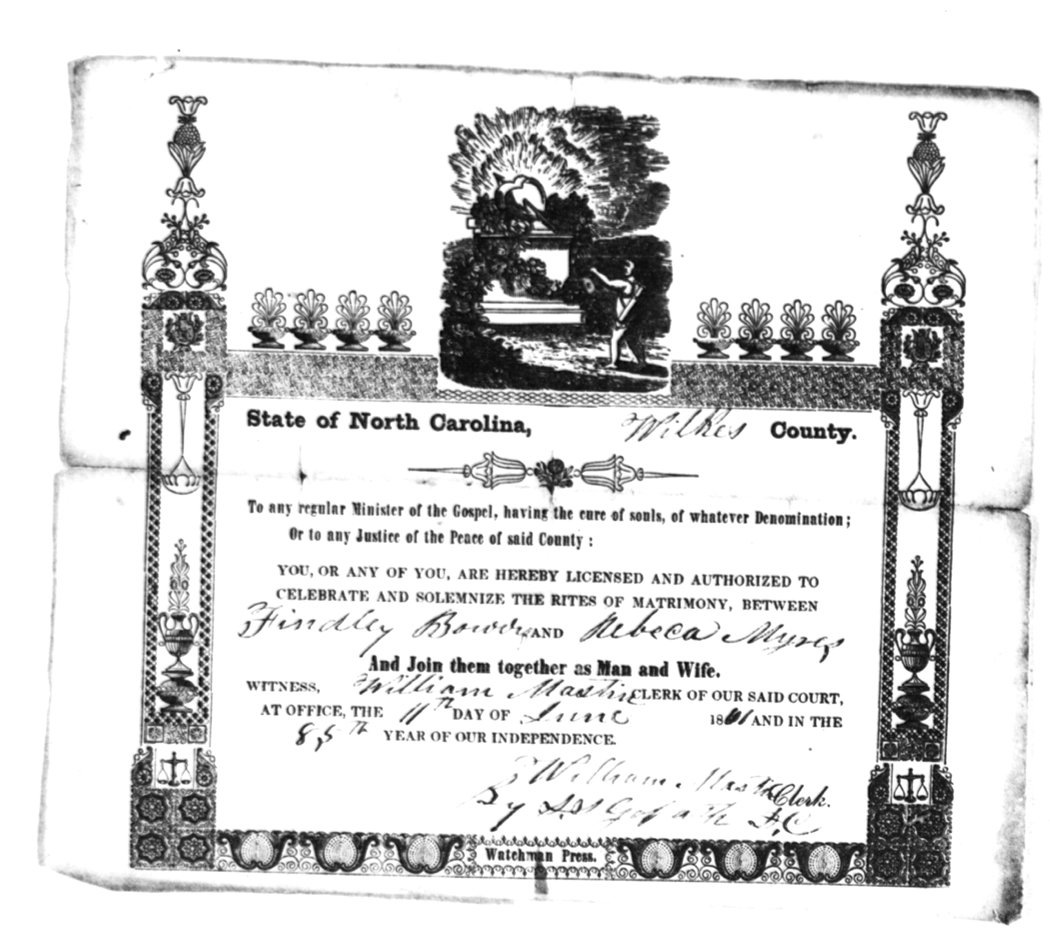 State of North Carolina, Wilkes County.
To any regular Minister of the Gospel, having the cure of souls, of whatever Denomination;
Or to any Justice of the Peace of said County:
YOU, OR ANY OF YOU, ARE HEREBY LICENSED AND AUTHORIZED TO
CELEBRATE AND SOLEMNIZE THE RITES OF MATRIMONY, BETWEEN
Findley AND Rebeca Myres
And Join them together as Man and Wife.
WITNESS, William Mastin CLERK OF OUR SAID COURT,
AT OFFICE, THE 11th DAY OF June 1861 AND IN THE
85th YEAR OF OUR INDEPENDENCE.
William Mastin Clerk.
By D.C
Watchman Press.